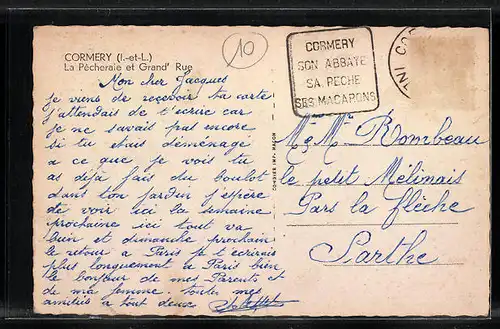 CORMERY (I.-et-L.)
La Pêcherale et Grand' Rue
10
CORMERY
SON ABBAYE
SA PECHE
SES MACARONS
Mon cher Jacques
je viens de recevoir ta carte
j'attendais de t'ecrire car
je ne savait pas encore
si tu etais demenagé
a ce que je vois tu
as deja fais du boulot
dans ton jardin j'espère
de voir ici la semaine
prochaine ici tout va
bien et dimanche prochain
le retour a Paris je t'ecrirais
plus longuement a Paris bien
le bonjour de mes Parents et
de ma femme. toutes mes
amitiés a tout deux
COMBIER IMP. MACON
M & Mme Rombeau
le petit Mélinais
Pars la flèche
Sarthe